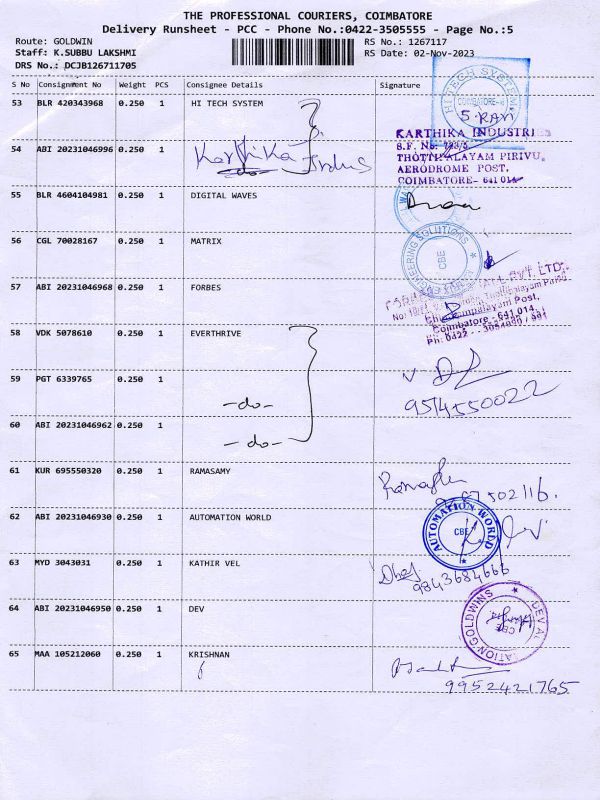 THE PROFESSIONAL COURIERS, COIMBATORE
Delivery Runsheet - PCC - Phone No.:0422-3505555 - Page No.:5
Route: GOLDWIN
Staff: K.SUBBU LAKSHMI
DRS No.: DCJB126711705
RS No.: 1267117
RS Date: 02-Nov-2023
S No Consignment No Weight PCS Consignee Details Signature
53 BLR 420343968 0.250 1 HI TECH SYSTEM
HI TECH SYSTEM
COIMBATORE
S. RAVI
54 ABI 20231046996 0.250 1 Karthika Indus
-do-
KARTHIKA INDUSTRIES
THOTTIPALAYAM PIRIVU,
AERODROME POST,
COIMBATORE- 641 014
55 BLR 4604104981 0.250 1 DIGITAL WAVES
56 CGL 70028167 0.250 1 MATRIX
ENGINEERING SOLUTIONS
CBE
57 ABI 20231046968 0.250 1 FORBES
PVT. LTD.
Thottipalayam Pirivu
Post,
Coimbatore - 641 014
Ph: 0422
58 VDK 5078610 0.250 1 EVERTHRIVE
59 PGT 6339765 0.250 1
-do-
9514550022
60 ABI 20231046962 0.250 1
-do-
61 KUR 695550320 0.250 1 RAMASAMY
62 ABI 20231046930 0.250 1 AUTOMATION WORLD
AUTOMATION WORLD
CBE
63 MYD 3043031 0.250 1 KATHIR VEL
9843684666
64 ABI 20231046950 0.250 1 DEV
CBE
65 MAA 105212060 0.250 1 KRISHNAN
9952421765